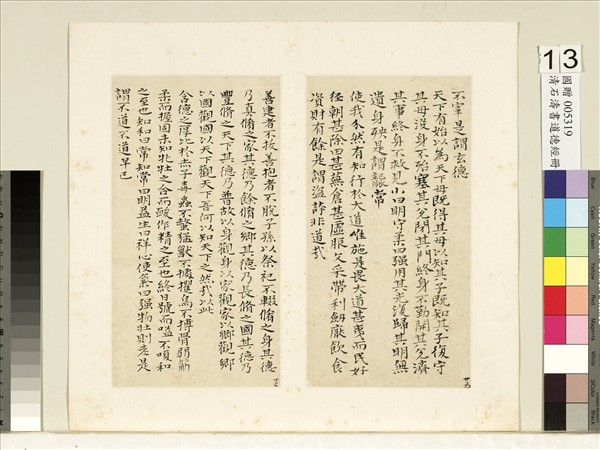 13
國贈 005319
清石濤書道德經冊
不宰是謂玄德
天下有始以為天下母既得其母以知其子既知其子復守
其母沒身不殆塞其兌閉其門終身不勤開其兌濟
其事終身不救見小曰明守柔曰强用其光復歸其明無
遺身殃是謂襲常
使我介然有知行於大道唯施是畏大道甚夷而民好
徑朝甚除田甚蕪倉甚虛服文采帶利劔厭飲食
資財有餘是謂盜誇非道哉
善建者不拔善抱者不脫子孫以祭祀不輟脩之身其德
乃真脩之家其德乃餘脩之鄉其德乃長脩之國其德乃
豐脩之天下其德乃普故以身觀身以家觀家以鄉觀鄉
以國觀國以天下觀天下吾何以知天下之然哉以此
含德之厚比於赤子毒蟲不螫猛獸不據攫鳥不搏骨弱筋
柔而握固未知牝牡之合而峻作精之至也終日號而嗌不嗄和
之至也知和曰常知常曰明益生曰祥心使氣曰强物壯則老是
謂不道不道早已
Blue
Cyan
Green
Yellow
Red
Magenta
White
3/Color
Black